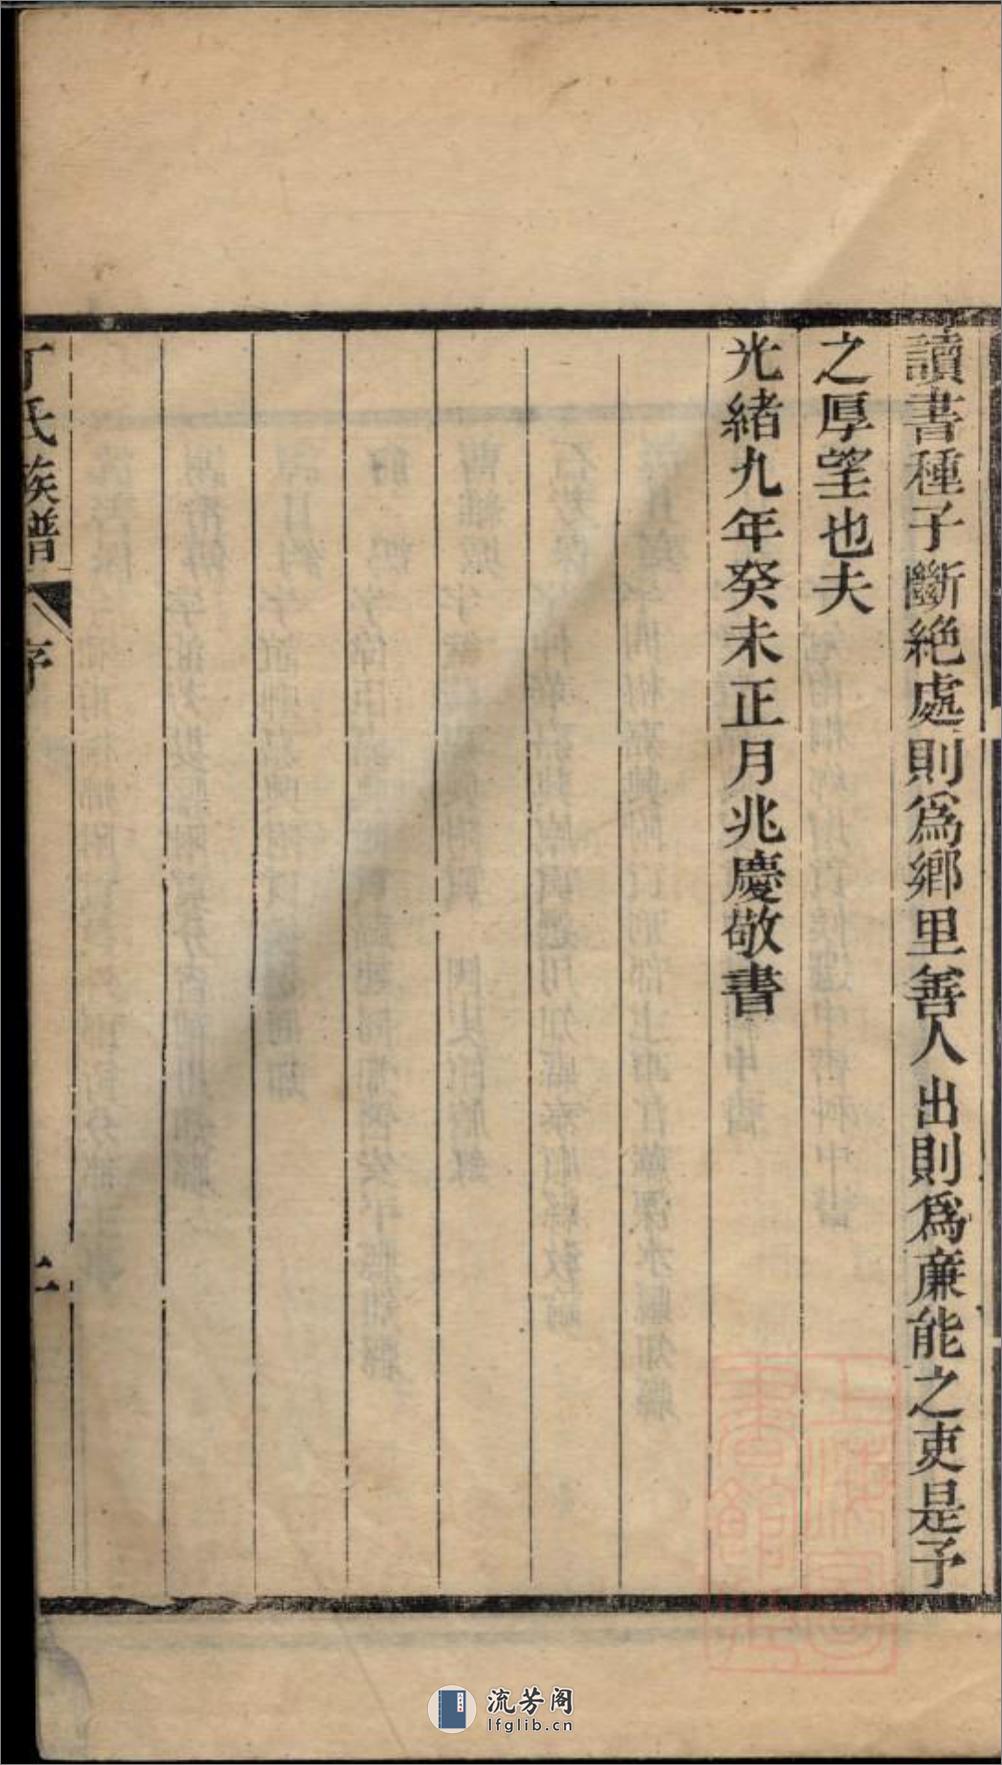 讀書種子斷絕處則爲鄉里善人出則爲廉能之吏是予
之厚望也夫
光緒九年癸未正月兆慶敬書
丁氏族譜
序
上海圖書館藏
流芳阁
lfglib.cn